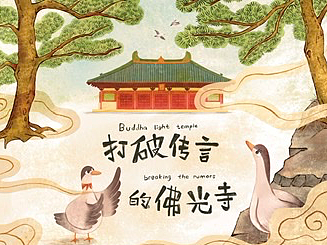 Buddha light temple
打破传言
breaking the rumors
的佛光寺